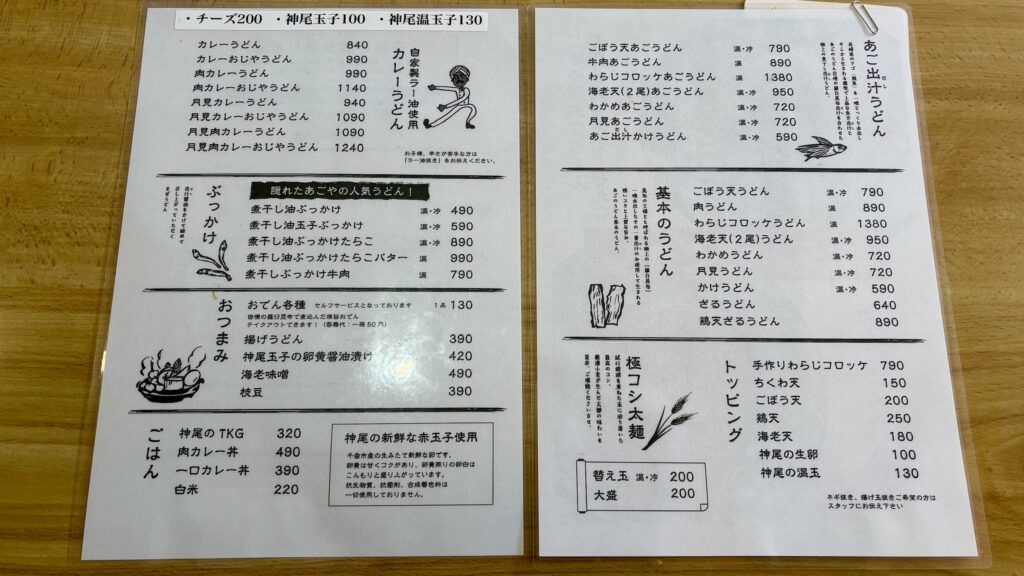 ・チーズ200 ・神尾玉子100 ・神尾温玉子130
自家製ラー油使用
カレーうどん
カレーうどん 840
カレーおじやうどん 990
肉カレーうどん 990
肉カレーおじやうどん 1140
月見カレーうどん 940
月見カレーおじやうどん 1090
月見肉カレーうどん 1090
月見肉カレーおじやうどん 1240
お子様、辛さが苦手な方は
「ラー油抜き」をお伝えください。
ぶっかけ
出汁醤油をかけて絡めて
召し上がっていただく
太ぞうどん
隠れたあごやの人気うどん！
煮干し油ぶっかけ 温・冷 490
煮干し油玉子ぶっかけ 温・冷 590
煮干し油ぶっかけたらこ 温・冷 890
煮干し油ぶっかけたらこバター 温 990
煮干しぶっかけ牛肉 温 790
おつまみ
おでん各種 セルフサービスとなっております 1品 130
自慢の羅臼昆布で煮込んだ極旨おでん
テイクアウトできます！（容器代：一箱50円）
揚げうどん 390
神尾玉子の卵黄醤油漬け 420
海老味噌 490
枝豆 390
ごはん
神尾のTKG 320
肉カレー丼 490
一口カレー丼 390
白米 220
神尾の新鮮な赤玉子使用
千歳市産の生みたて新鮮な卵です。
卵黄は甘くコクがあり、卵黄周りの卵白は
こんもりと盛り上がっています。
抗生物質、抗菌剤、合成着色料は
一切使用しておりません。
あご出汁うどん
だし
ごぼう天あごうどん 温・冷 790
牛肉あごうどん 温 890
わらじコロッケあごうどん 温 1380
海老天(2尾)あごうどん 温・冷 950
わかめあごうどん 温・冷 720
月見あごうどん 温・冷 720
あご出汁かけうどん 温・冷 590
だし
基本のうどん
ごぼう天うどん 温・冷 790
肉うどん 温 890
わらじコロッケうどん 温 1380
海老天(2尾)うどん 温・冷 950
わかめうどん 温・冷 720
月見うどん 温・冷 720
かけうどん 温・冷 590
ざるうどん 640
鶏天ざるうどん 890
極コシ太麺
替え玉 温・冷 200
大盛 200
トッピング
手作りわらじコロッケ 790
ちくわ天 150
ごぼう天 200
鶏天 250
海老天 180
神尾の生卵 100
神尾の温玉 130
ネギ抜き、揚げ玉抜きご希望の方は
スタッフにお伝え下さい